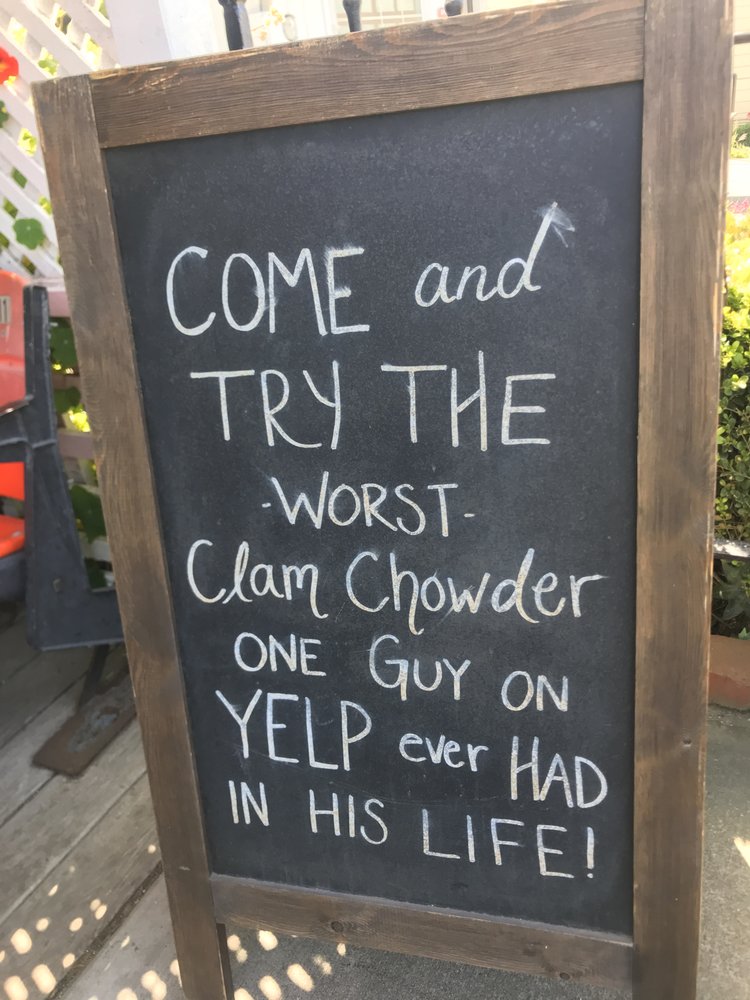 COME and
TRY THE
-WORST-
Clam Chowder
ONE GUY ON
YELP ever HAD
IN HIS LIFE!
11